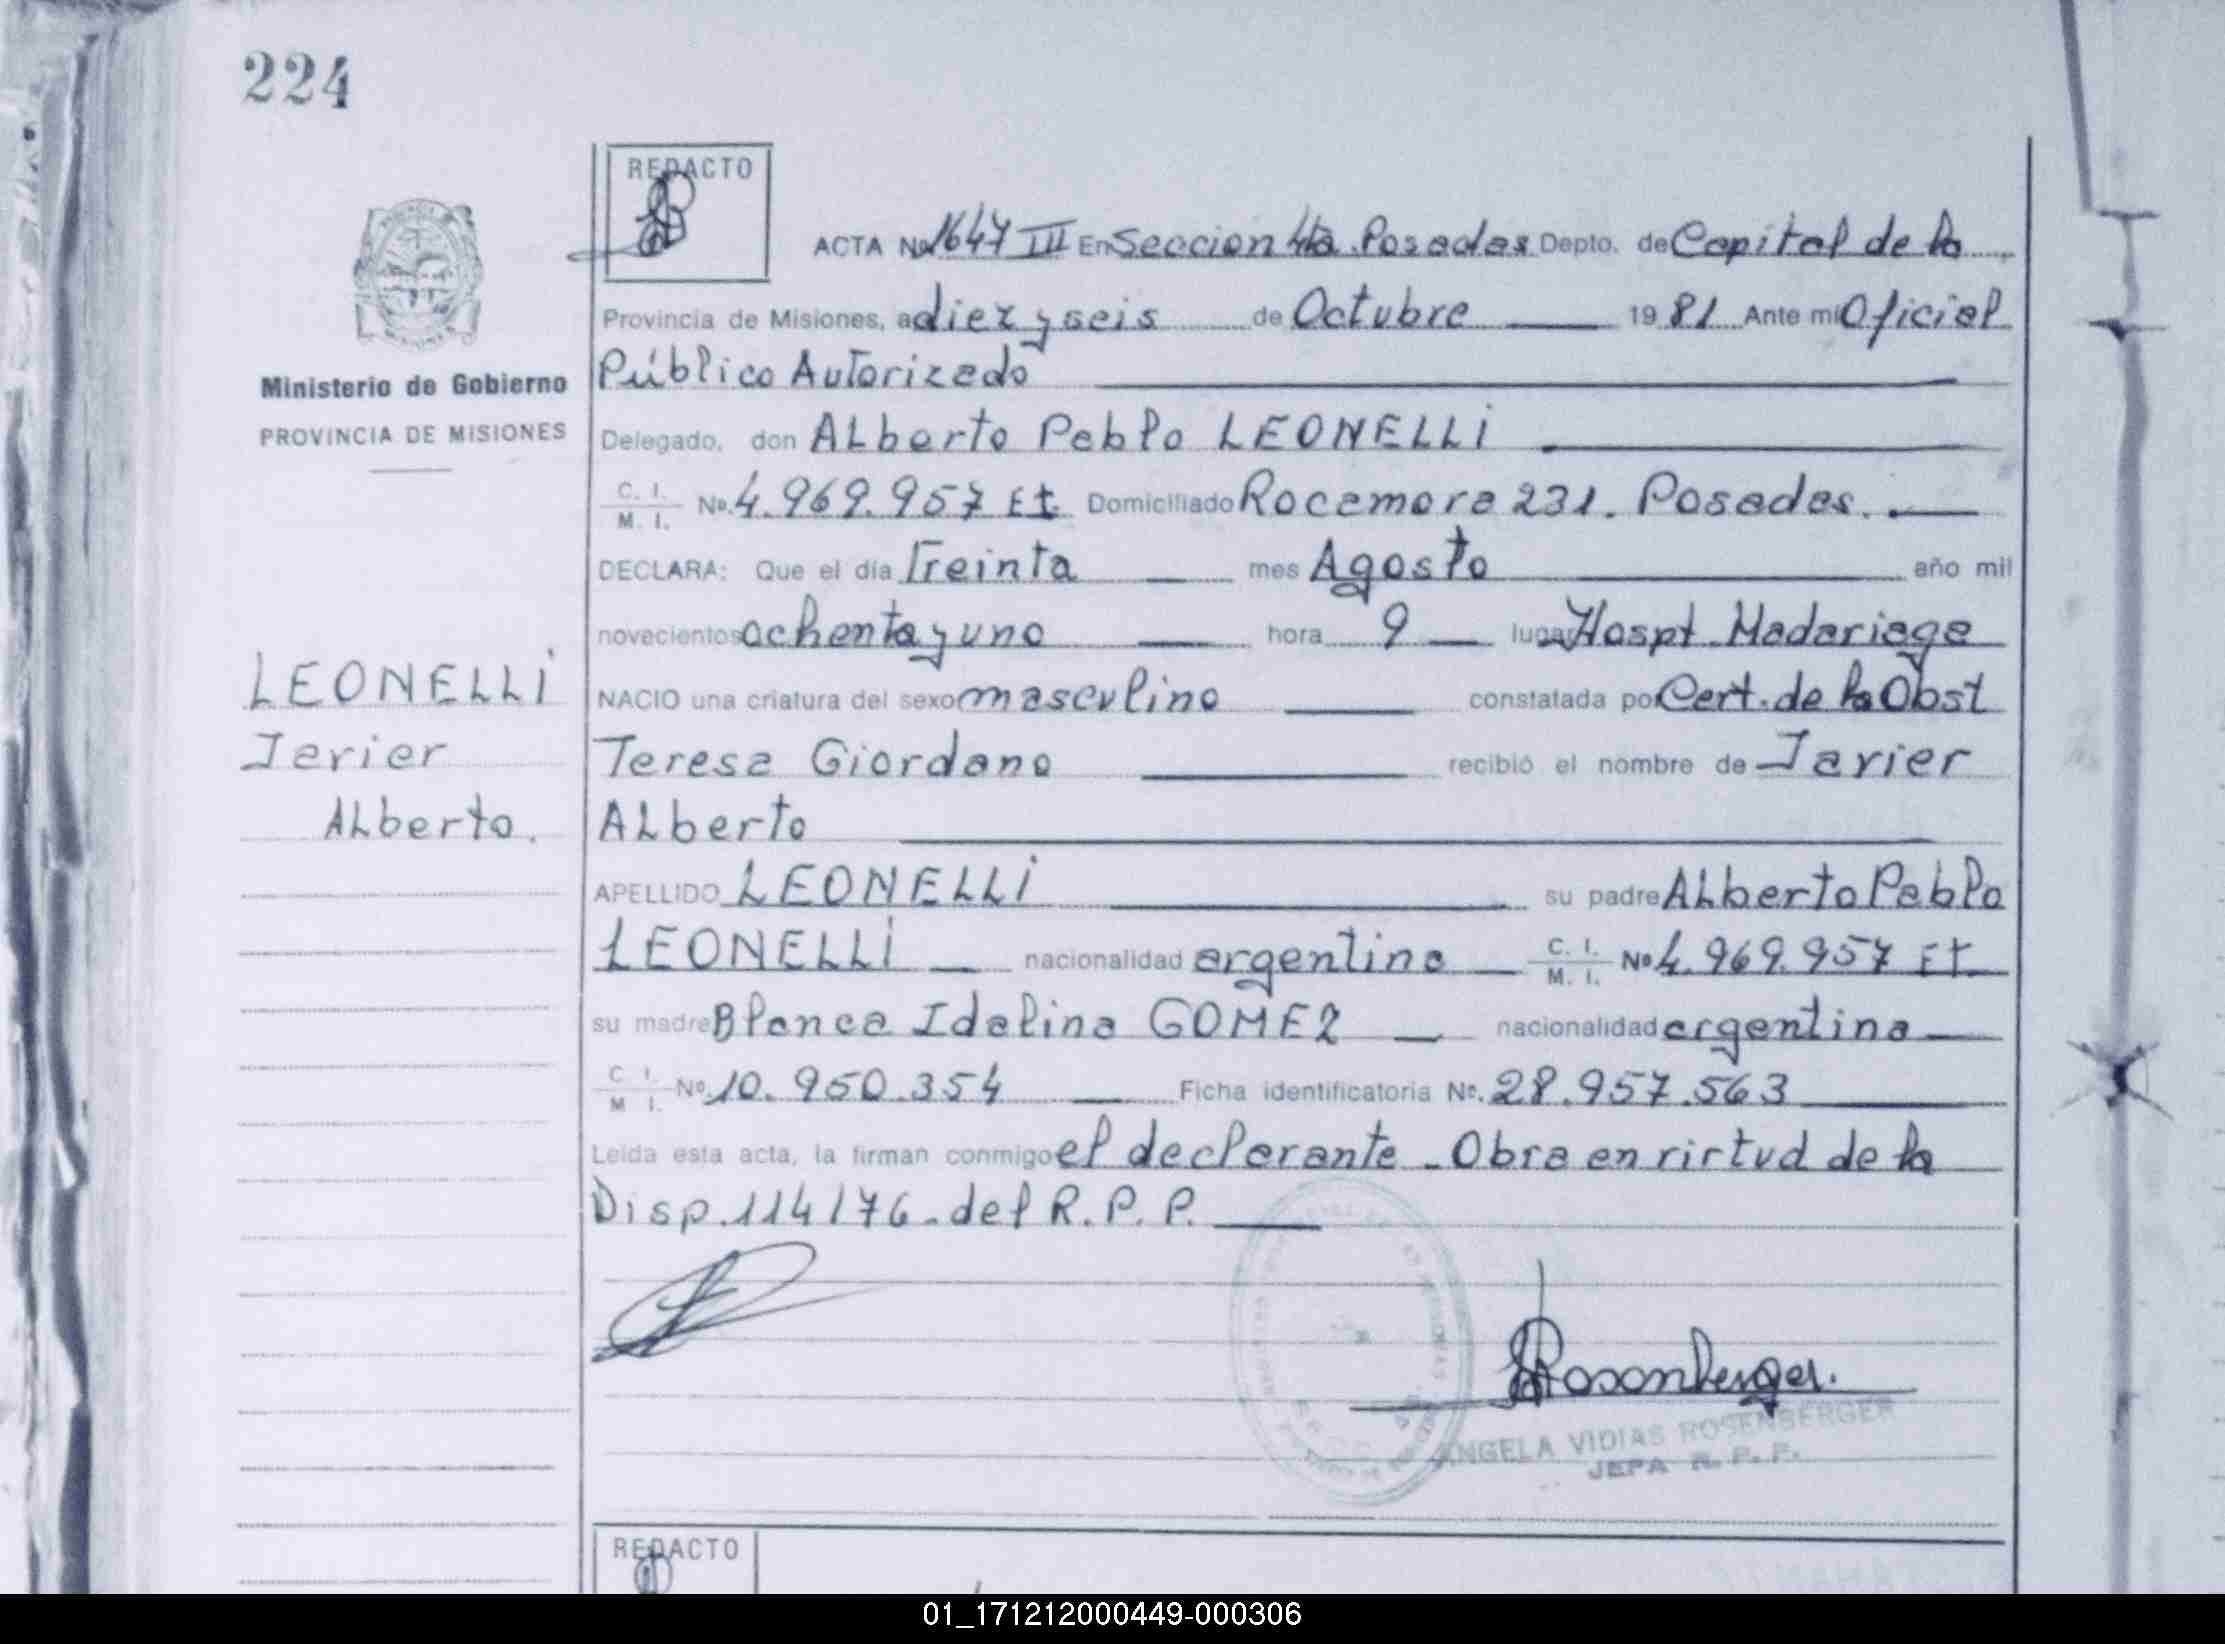 224
REDACTO
ACTA No. 1647 III En Seccion 4ta. Posadas Depto. de Capital de la
Provincia de Misiones, a diez y seis de Octubre 1981 Ante mi Oficial
Público Autorizado
Ministerio de Gobierno
PROVINCIA DE MISIONES
Delegado, don ALberto Pablo LEONELLI
C. I. M. I. No. 4.969.957 Et. Domiciliado Rocamora 231. Posadas.
DECLARA: Que el día Treinta mes Agosto año mil
novecientos ochenta y uno hora 9 lugar Hospt. Madariaga
NACIO una criatura del sexo masculino constatada por Cert. de la Obst
Teresa Giordano recibió el nombre de Javier
ALberto
LEONELLI
Javier
ALberto.
APELLIDO LEONELLI su padre ALberto Pablo
LEONELLI nacionalidad argentino C. I. M. I. No 4.969.957 Et.
su madre Blanca Idalina GOMEZ nacionalidad argentina
C. I. M. I. No. 10.950.354 Ficha identificatoria No. 28.957.563
Leída esta acta, la firman conmigo el declarante. Obra en virtud de la
Disp. 114/76. del R. P. P.
Rosenberger.
ANGELA VIDIAS ROSENBERGER
JEFA R. P. P.
REDACTO
01_171212000449-000306